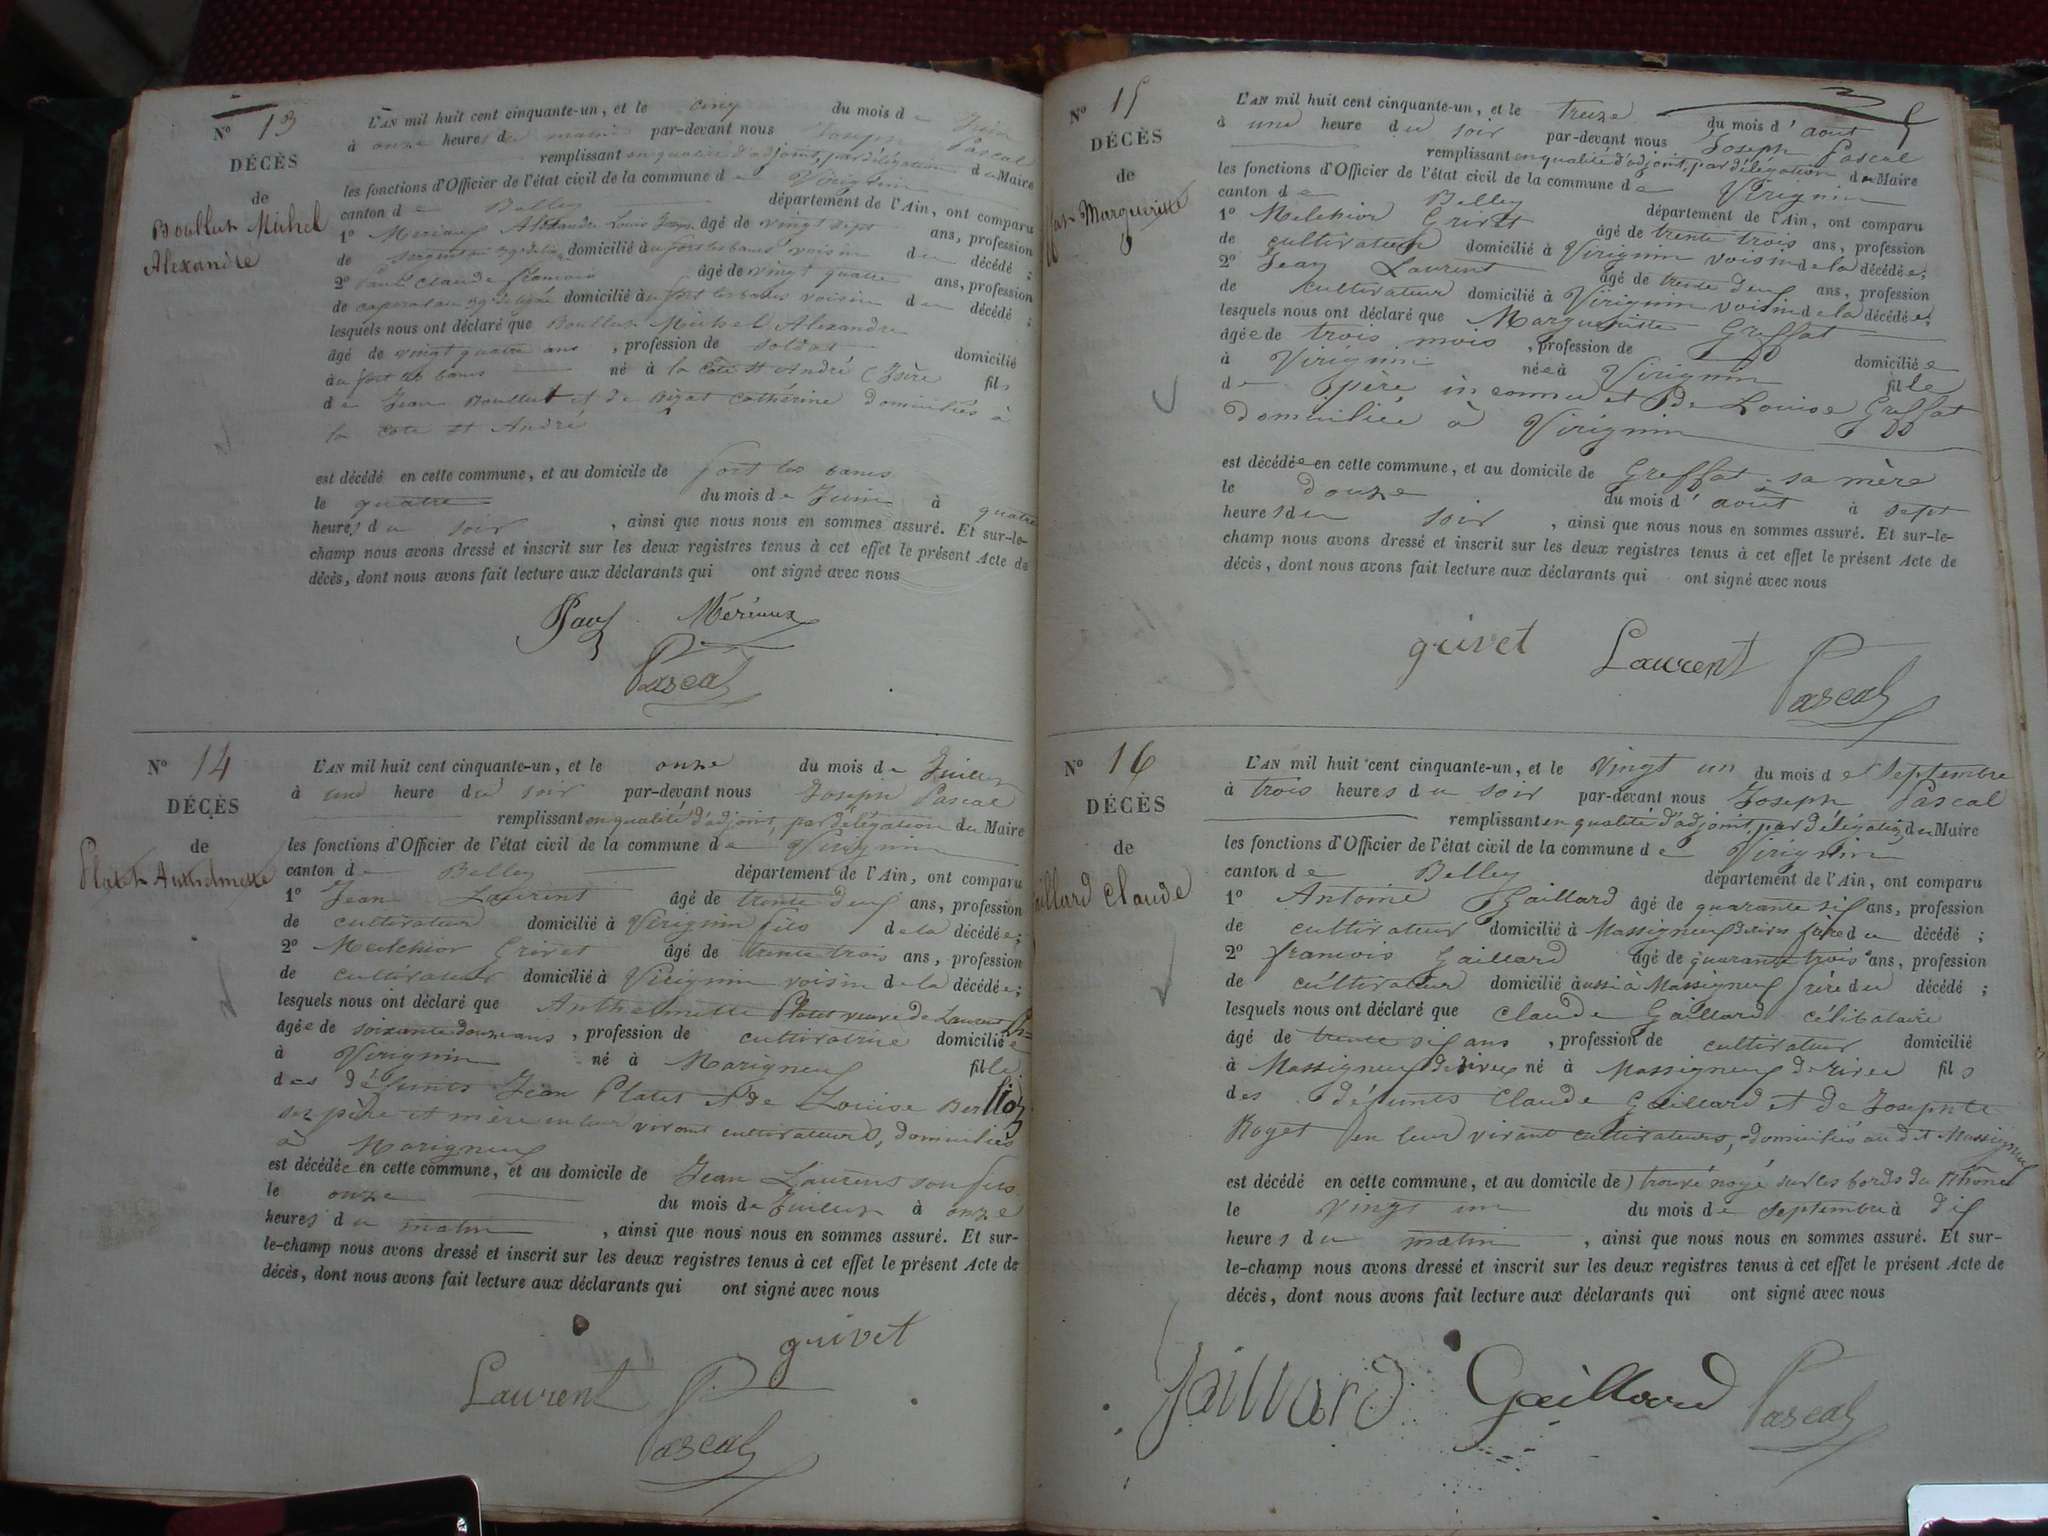 N° 13
DÉCÈS
de
Boullut Michel
Alexandre
L'AN mil huit cent cinquante-un, et le cinq du mois de Juin
à onze heures du matin par-devant nous Joseph Pascal
remplissant en qualité d'adjoint, par délégation du Maire
les fonctions d'Officier de l'état civil de la commune de Virignin
canton de Belley département de l'Ain, ont comparu
1° Meriaux Alexandre Louis âgé de vingt sept ans, profession
de sergent au domicilié au fort les bancs voisin du décédé ;
2° Paul Claude françois âgé de vingt quatre ans, profession
de caporal au domicilié au fort les bancs voisin du décédé ;
lesquels nous ont déclaré que Boullut Michel Alexandre
âgé de vingt quatre ans , profession de soldat domicilié
au fort les bancs né à la Cote St André (Isère fils
de Jean Boullut et de Bizat Cathérine domiciliés à
la Cote St André
est décédé en cette commune, et au domicile de fort les bancs
le quatre du mois de Juin à quatre
heures du soir , ainsi que nous nous en sommes assuré. Et sur-le-
champ nous avons dressé et inscrit sur les deux registres tenus à cet effet le présent Acte de
décès, dont nous avons fait lecture aux déclarants qui ont signé avec nous
Paul Mériaux
Pascal
N° 14
DÉCÈS
de
Platet Anthelmette
L'AN mil huit cent cinquante-un, et le onze du mois de Juillet
à une heure du soir par-devant nous Joseph Pascal
remplissant en qualité d'adjoint, par délégation du Maire
les fonctions d'Officier de l'état civil de la commune de Virignin
canton de Belley département de l'Ain, ont comparu
1° Jean Laurent âgé de trente deux ans, profession
de cultivateur domicilié à Virignin fils de la décédée ;
2° Melchior Grivet âgé de trente trois ans, profession
de cultivateur domicilié à Virignin voisin de la décédée ;
lesquels nous ont déclaré que Anthelmette Platet veuve de Laurent
âgée de soixante douze ans , profession de cultivatrice domiciliée
à Virignin né à Marigneux fille
des défunts Jean Platet et de Louise Berlioz
ses père et mère en leur vivant cultivateurs, domiciliés
à Marigneux
est décédée en cette commune, et au domicile de Jean Laurent son fils
le onze du mois de Juillet à onze
heures du matin , ainsi que nous nous en sommes assuré. Et sur-
le-champ nous avons dressé et inscrit sur les deux registres tenus à cet effet le présent Acte de
décès, dont nous avons fait lecture aux déclarants qui ont signé avec nous
Laurent grivet
Pascal
N° 15
DÉCÈS
de
Marguerite
L'AN mil huit cent cinquante-un, et le treize du mois d'août
à une heure du soir par-devant nous Joseph Pascal
remplissant en qualité d'adjoint, par délégation du Maire
les fonctions d'Officier de l'état civil de la commune de Virignin
canton de Belley département de l'Ain, ont comparu
1° Melchior Grivet âgé de trente trois ans, profession
de cultivateur domicilié à Virignin voisin de la décédée ;
2° Jean Laurent âgé de trente deux ans, profession
de cultivateur domicilié à Virignin voisin de la décédée ;
lesquels nous ont déclaré que Marguerite Greffat
âgée de trois mois , profession de domiciliée
à Virignin née à Virignin fille
de père inconnu et de Louise Greffat
domiciliée à Virignin
est décédée en cette commune, et au domicile de Greffat sa mère
le douze du mois d'août à sept
heures du soir , ainsi que nous nous en sommes assuré. Et sur-le-
champ nous avons dressé et inscrit sur les deux registres tenus à cet effet le présent Acte de
décès, dont nous avons fait lecture aux déclarants qui ont signé avec nous
grivet Laurent Pascal
N° 16
DÉCÈS
de
Gaillard Claude
L'AN mil huit cent cinquante-un, et le vingt un du mois de Septembre
à trois heures du soir par-devant nous Joseph Pascal
remplissant en qualité d'adjoint, par délégation du Maire
les fonctions d'Officier de l'état civil de la commune de Virignin
canton de Belley département de l'Ain, ont comparu
1° Antoine Gaillard âgé de quarante six ans, profession
de cultivateur domicilié à Massigneux de rive frère du décédé ;
2° françois Gaillard âgé de quarante trois ans, profession
de cultivateur domicilié aussi à Massigneux frère du décédé ;
lesquels nous ont déclaré que Claude Gaillard célibataire
âgé de trente six ans , profession de cultivateur domicilié
à Massigneux de rives né à Massigneux de rives fils
des défunts Claude Gaillard et de Josephte
Royet en leur vivant cultivateurs, domiciliés au dit Massigneux
est décédé en cette commune, et au domicile de) trouvé noyé sur les bords du Rhône
le vingt un du mois de septembre à dix
heures du matin , ainsi que nous nous en sommes assuré. Et sur-
le-champ nous avons dressé et inscrit sur les deux registres tenus à cet effet le présent Acte de
décès, dont nous avons fait lecture aux déclarants qui ont signé avec nous
Gaillard Gaillard Pascal